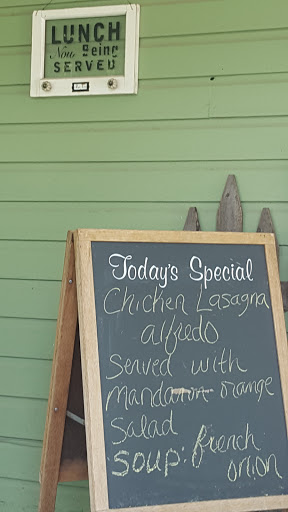 LUNCH
Now Being
SERVED
Today's Special
Chicken Lasagna
alfredo
Served with
mandarin orange
Salad
Soup: french
onion